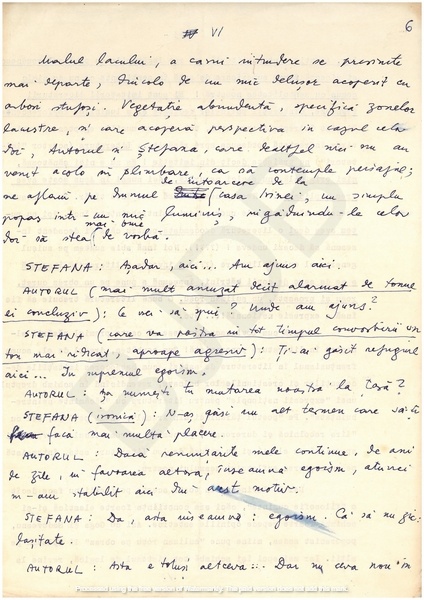 VI
6
Malul lacului, a cărui întindere se presimte
mai departe, dincolo de un mic deluşor acoperit cu
arbori stufoşi. Vegetaţie abundentă, specifică zonelor
lacustre, şi care acoperă perspectiva în cazul celor
doi, Autorul şi Ştefana, care dealtfel nici nu au
venit acolo în plimbare, ca să contemple peisajul;
de întoarcere de la
ne aflăm pe drumul (casa Irinei, un simplu
popas într-un mic luminiş, îngăduindu-le celor
mai bine
doi să stea de vorbă.
ŞTEFANA: Aşadar, aici... Am ajuns aici.
AUTORUL (mai mult amuzat decît alarmat de tonul
ei concluziv): Ce vrei să spui? Unde am ajuns?
ŞTEFANA (care va păstra în tot timpul convorbirii un
ton mai ridicat, aproape agresiv): Ţi-ai găsit refugiul
aici... În supremul egoism.
AUTORUL: Aşa numeşti tu mutarea noastră la ţară?
ŞTEFANA (ironică): N-aş găsi un alt termen care să-ţi
facă mai multă plăcere.
AUTORUL: Dacă renunţările mele continue, de ani
de zile, în favoarea altora, înseamnă egoism, atunci
m-am stabilit aici din acest motiv.
ŞTEFANA: Da, asta înseamnă: egoism. Ca să nu zic:
laşitate.
AUTORUL: Asta e totuşi altceva... Dar nu ceva nou în